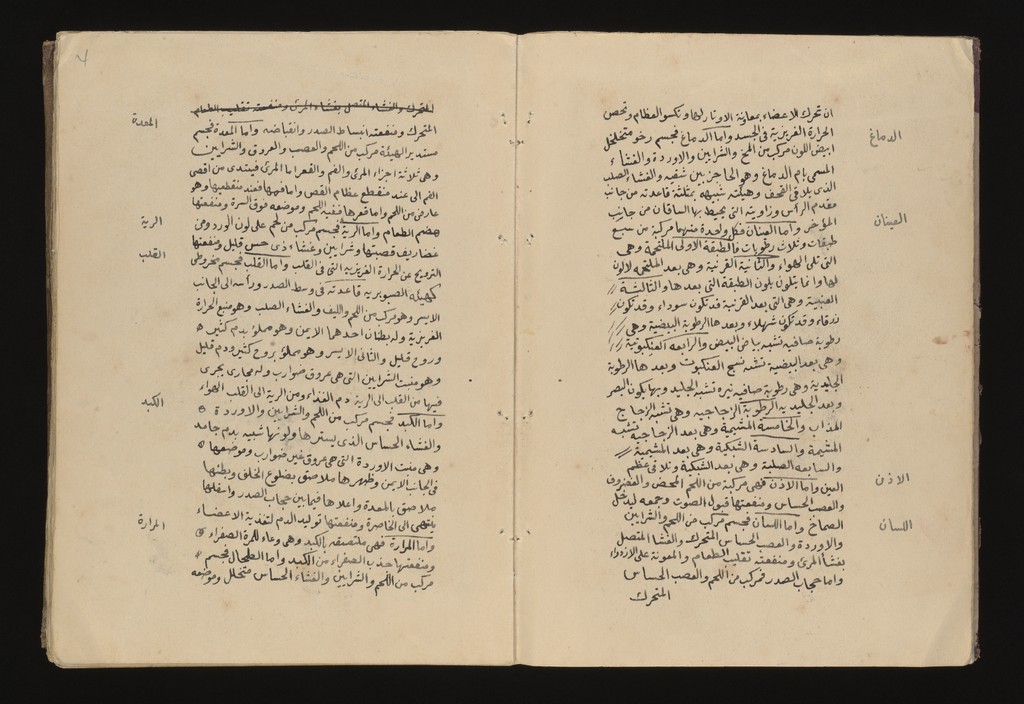 ان تحرك للاعضاء بمعاونة الاوتار لها وتكسو العظام وتحصن
الدماغ
الحرارة الغريزية في الجسد واما الدماغ فجسم رخو متخلخل
ابيض اللون مركب من المخ والشرايين والاوردة والغشاء
المسمى بام الدماغ وهو الحاجز بين شقيه والغشاء الصلب
الذى يلاقى القحف وهيئته شبيهه بمثلثة قاعدته من جانب
مقدم الراس وزاويته التى يحيط بها الساقان من جانب
العينان
المؤخر واما العينان فكل واحدة منهما مركبة من سبع
طبقات وثلاث رطوبات فالطبقة الاولى الملتحمة وهى
التى تلى الهواء والثانية القرنية وهى بعد الملتحمه لا لون
لها وانما يتلون بلون الطبقة التى بعدها والثالثة
العنبية وهى التى بعد القرنية قد تكون سوداء وقد تكون
زرقاء وقد تكون شهلاء وبعدها الرطوبة البيضية وهى
رطوبة صافيه تشبه بياض البيض والرابعه العنكبوتية
وهى بعد البيضية تشبه نسج العنكبوت وبعدها الرطوبة
الجليدية وهى رطوبة صافيه نيره تشبه الجليد وبها يكون البصر
وبعد الجليديه الرطوبة الزجاجيه وهى تشبه الزجاج
المذاب والخامسة المشيمية وهى بعد الزجاجيه تشبه
المشيمة والسادسة الشبكية وهى بعد المشيمية
والسابعه الصلبية وهى بعد الشبكية وتلاقى عظم
الاذن
العين واما الاذن فهى مركبة من اللحم المحض والغضروف
والعصب الحساس ومنفعتها قبول الصوت وجمعه ليدخل
اللسان
الصماخ واما اللسان فجسم مركب من اللحم والشرايين
والاوردة والعصب الحساس المتحرك والغشا المتصل
بغشا المرئ ومنفعته تقليب الطعام والمعونة على الازدراد
واما حجاب الصدر فمركب من اللحم والعصب الحساس
المتحرك
٧
المتحرك والغشاء المتصل بغشاء المرئ ومنفعته تقليب الطعام
المعدة
المتحرك ومنفعته انبساط الصدر وانقباضه واما المعدة فجسم
مستدير الهيئة مركب من اللحم والعصب والعروق والشرايين
وهى ثلاثة اجزاء المرئ والفم والقعر اما المرئ فيبتدى من اقصى
الفم الى عند منقطع عظام القص واما فمها فعند منقطعها وهو
عار من اللحم واما قعرها ففيه اللحم وموضعه فوق السرة ومنفعتها
الرية
هضم الطعام واما الرية فجسم مركب من لحم على لون الورد ومن
غضاريف قصبتها وشرايين وغشاء ذى حس قليل ومنفعتها
القلب
الترويح عن الحرارة الغريزيه التى فى القلب واما القلب فجسم مخروطى
كهيئة الصنوبريه قاعدته فى وسط الصدر وراسه الى الجانب
الايسر وهو مركب من اللحم والليف والغشاء الصلب وهو منبع الحرارة
الغريزية وله بطنان احدهما الايمن وهو مملؤ بدم كثير
وروح قليل والثانى الايسر وهو مملؤ بروح كثير ودم قليل
وهو منبت الشرايين التى هى عروق ضوارب وله مجارى يجرى
فيها من القلب الى الرية دم الغذاء ومن الرية الى القلب الهواء
الكبد
واما الكبد فجسم مركب من اللحم والشرايين والاوردة
والغشاء الحساس الذى يسترها ولونها شبيه بدم جامد
وهى منبت الاوردة التى هى عروق غير ضوارب وموضعها
فى الجانب الايمن وظهرها ملاصق بضلوع الخلف وبطنها
ملاصق بالمعدة واعلاها فيما بين حجاب الصدر واسفلها
ينتهى الى الخاصرة ومنفعتها توليد الدم لتغذية الاعضاء
المرارة
واما المرارة فهى ملتصقه بالكبد وهى وعاء للمرة الصفراء
ومنفعتها جذب الصفراء من الكبد واما الطحال فجسم
مركب من اللحم والشرايين والغشاء الحساس متخلخل وموضعه